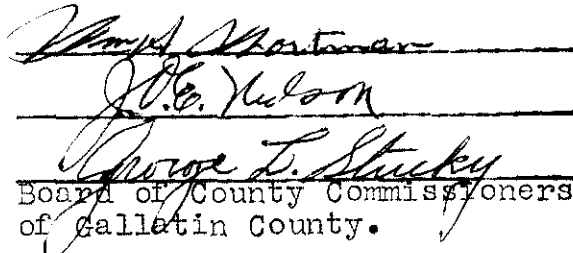 Wortman
J. E. Nelson
George L. Stucky
Board of County Commissioners
of Gallatin County.